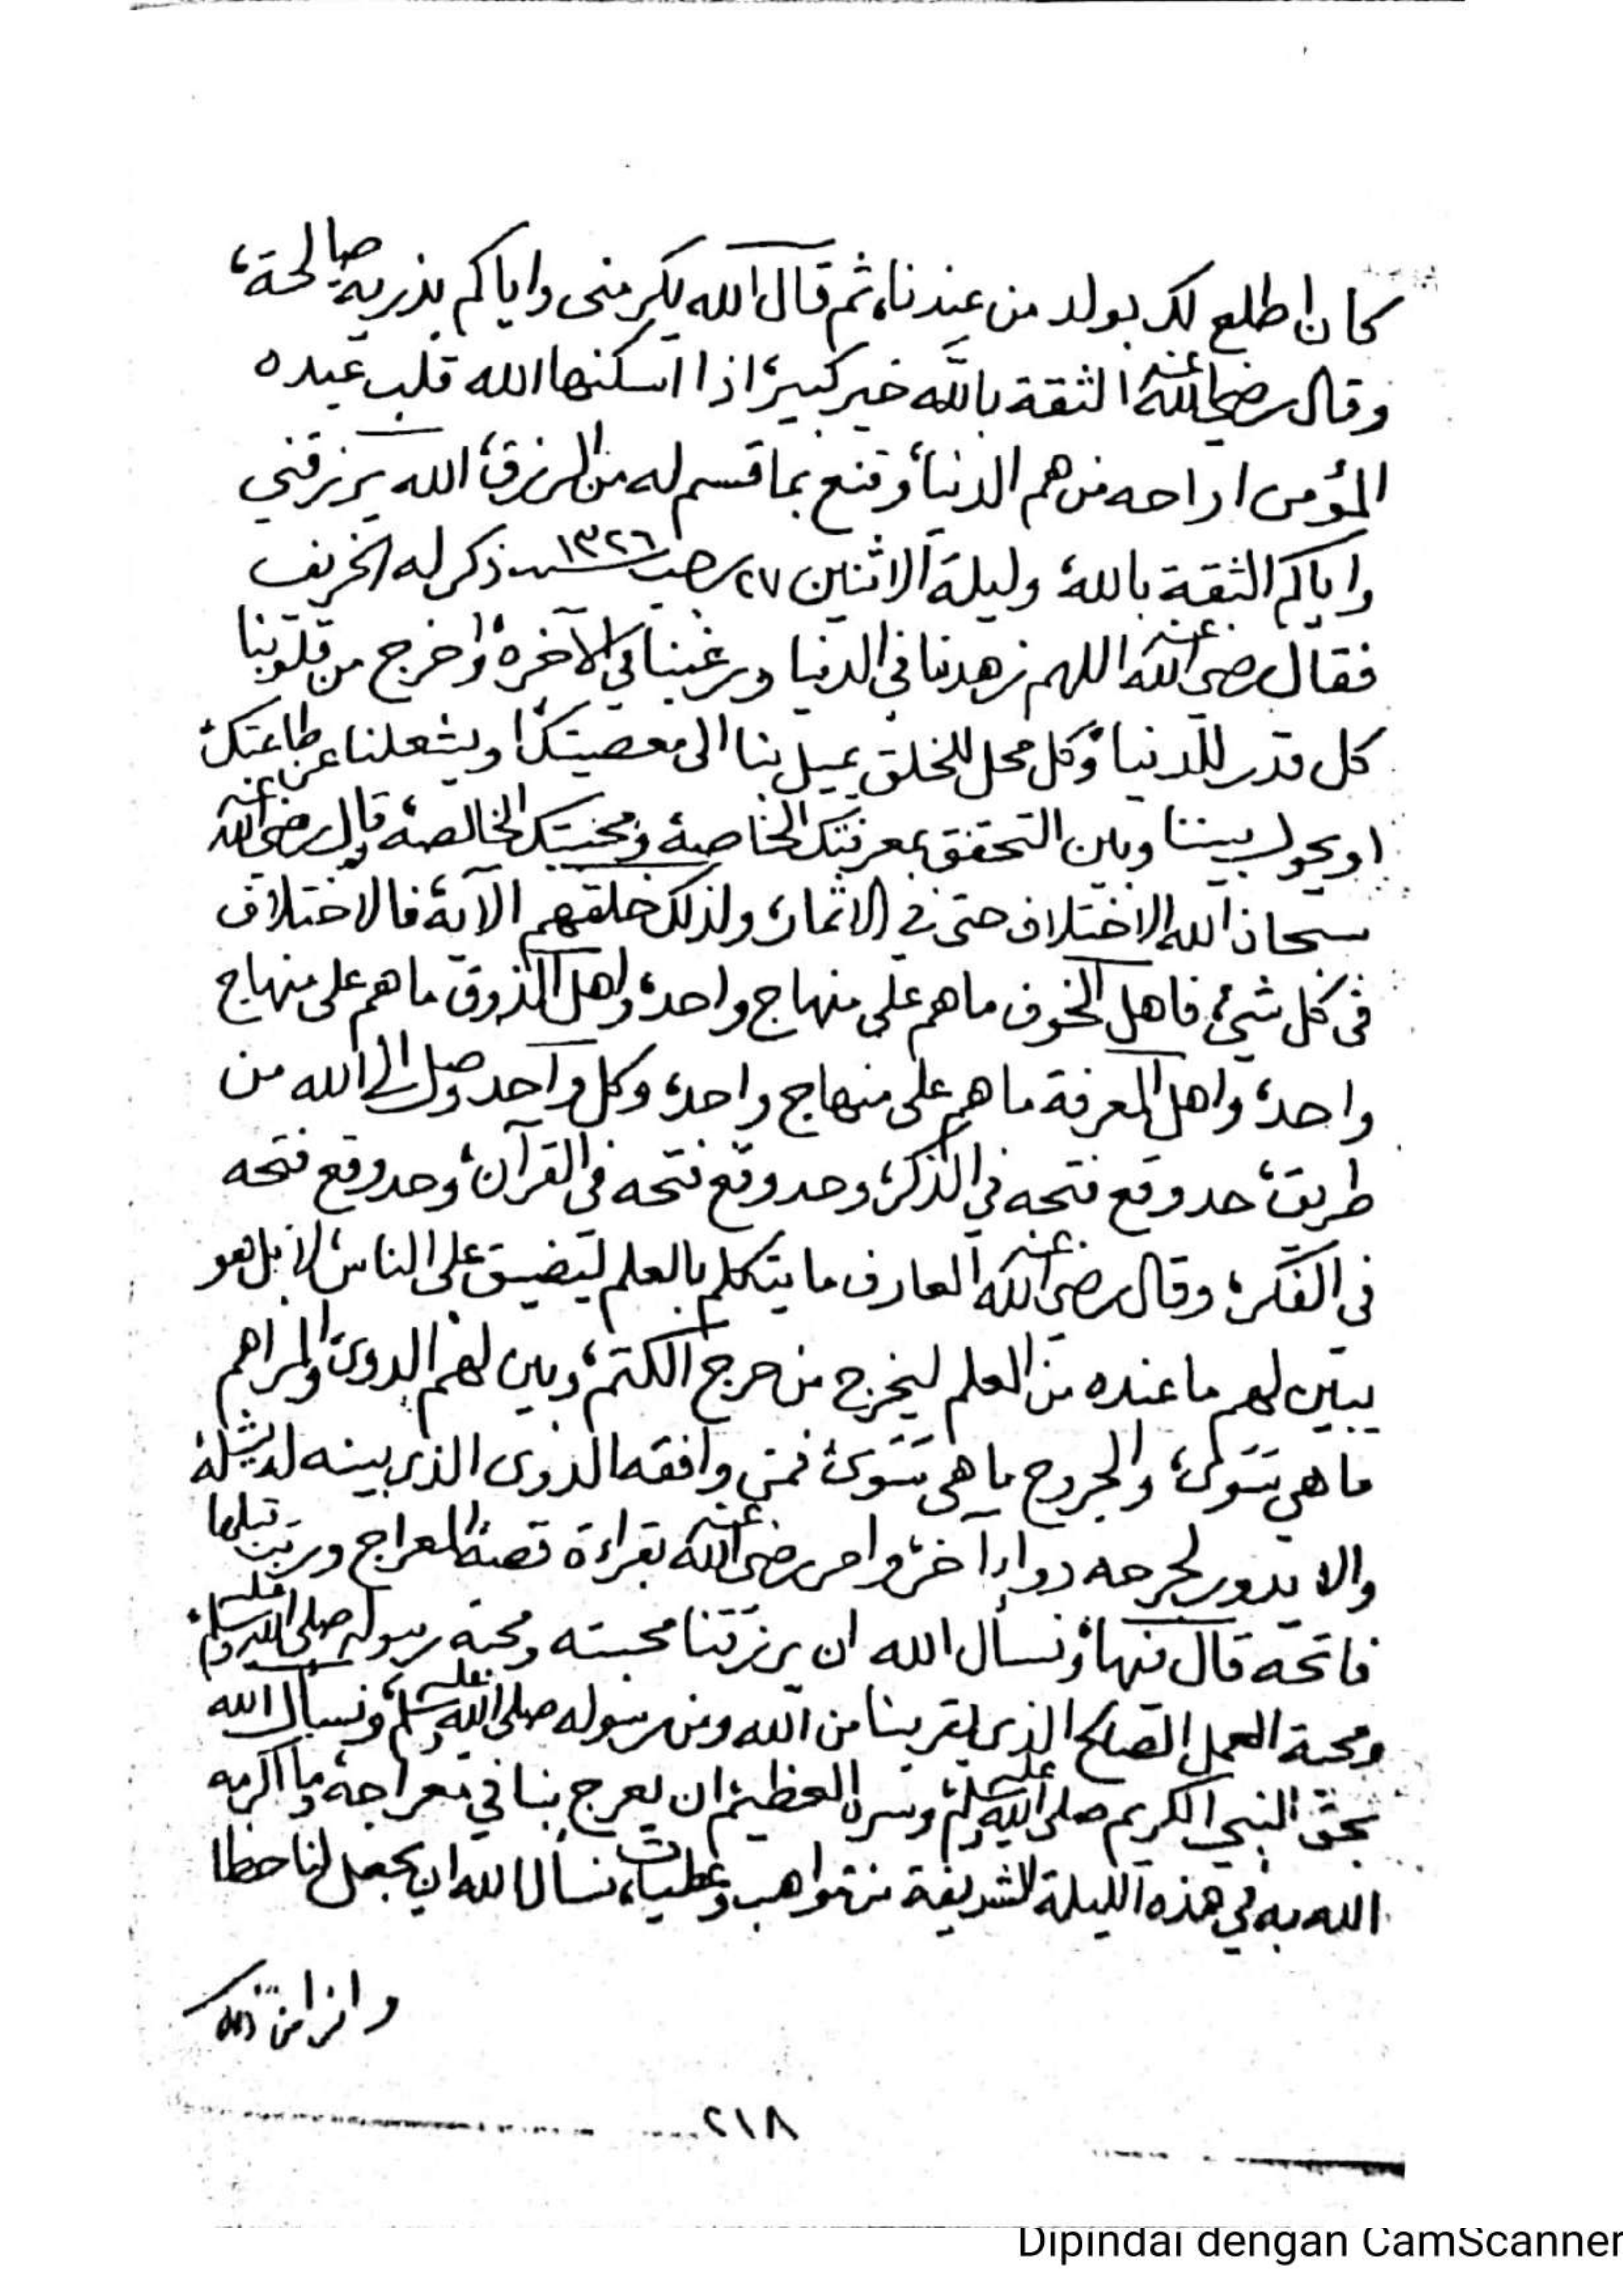 كان اطلع لك بولد من عندنا، ثم قال الله يكرمنى واياكم بذرية صالحة،
وقال رضي الله عنه الثقة بالله خير كبير، اذا اسكنها الله قلب عبده
المؤمن اراحه من هم الدنيا، وقنع بما قسم له من الرزق، الله يرزقني
واياكم الثقة بالله، وليلة الاثنين ٢٧ رجب سنة ١٣٢٦ ذكر له الخريف
فقال رضى الله عنه اللهم زهدنا في الدنيا ورغبنا في الآخرة، واخرج من قلوبنا
كل قدر للدنيا، وكل محل للخلق يميل بنا الى معصيتك، ويشغلنا عن طاعتك،
او يحول بيننا وبين التحقق بمعرفتك الخاصة، ومحبتك الخالصة، قال رضى الله عنه
سبحان الله الاختلاف حتى في الاثمار، ولذلك خلقهم الآية، فالاختلاف
فى كل شيء، فاهل الخوف ما هم على منهاج واحد، واهل الذوق ما هم على منهاج
واحد، واهل المعرفة ما هم على منهاج واحد، وكل واحد وصل الى الله من
طريق، حد وقع فتحه في الذكر، وحد وقع فتحه فى القرآن، وحد وقع فتحه
فى الفكر، وقال رضى الله عنه العارف ما يتكلم بالعلم ليضيق على الناس، لا بل هو
يبين لهم ما عنده من العلم ليخرج من حرج الكتم، وبين لهم الدوى والمراهم
ما هي سَوى، والجروح ما هى سَوى، فمن وافقه الدوى الذي بينه له يشله،
والا يدور لجرحه دواء آخر، وامر رضى الله عنه بقراءة قصة المعراج ورتب قبلها
فاتحة قال فيها، ونسأل الله ان يرزقنا محبته ومحبة رسوله صلى الله عليه وسلم،
ومحبة العمل الصالح الذي يقربنا من الله ومن رسوله صلى الله عليه وسلم، ونسأل الله
بحق النبي الكريم صلى الله عليه وسلم، وسره العظيم، ان يعرج بنا في معراجه، وما اكرمه
الله به في هذه الليلة الشريفة من مواهب وعطيات، نسأل الله ان يجعل لنا حظا
وافرا من ذلك
٢١٨
Dipindai dengan CamScanner